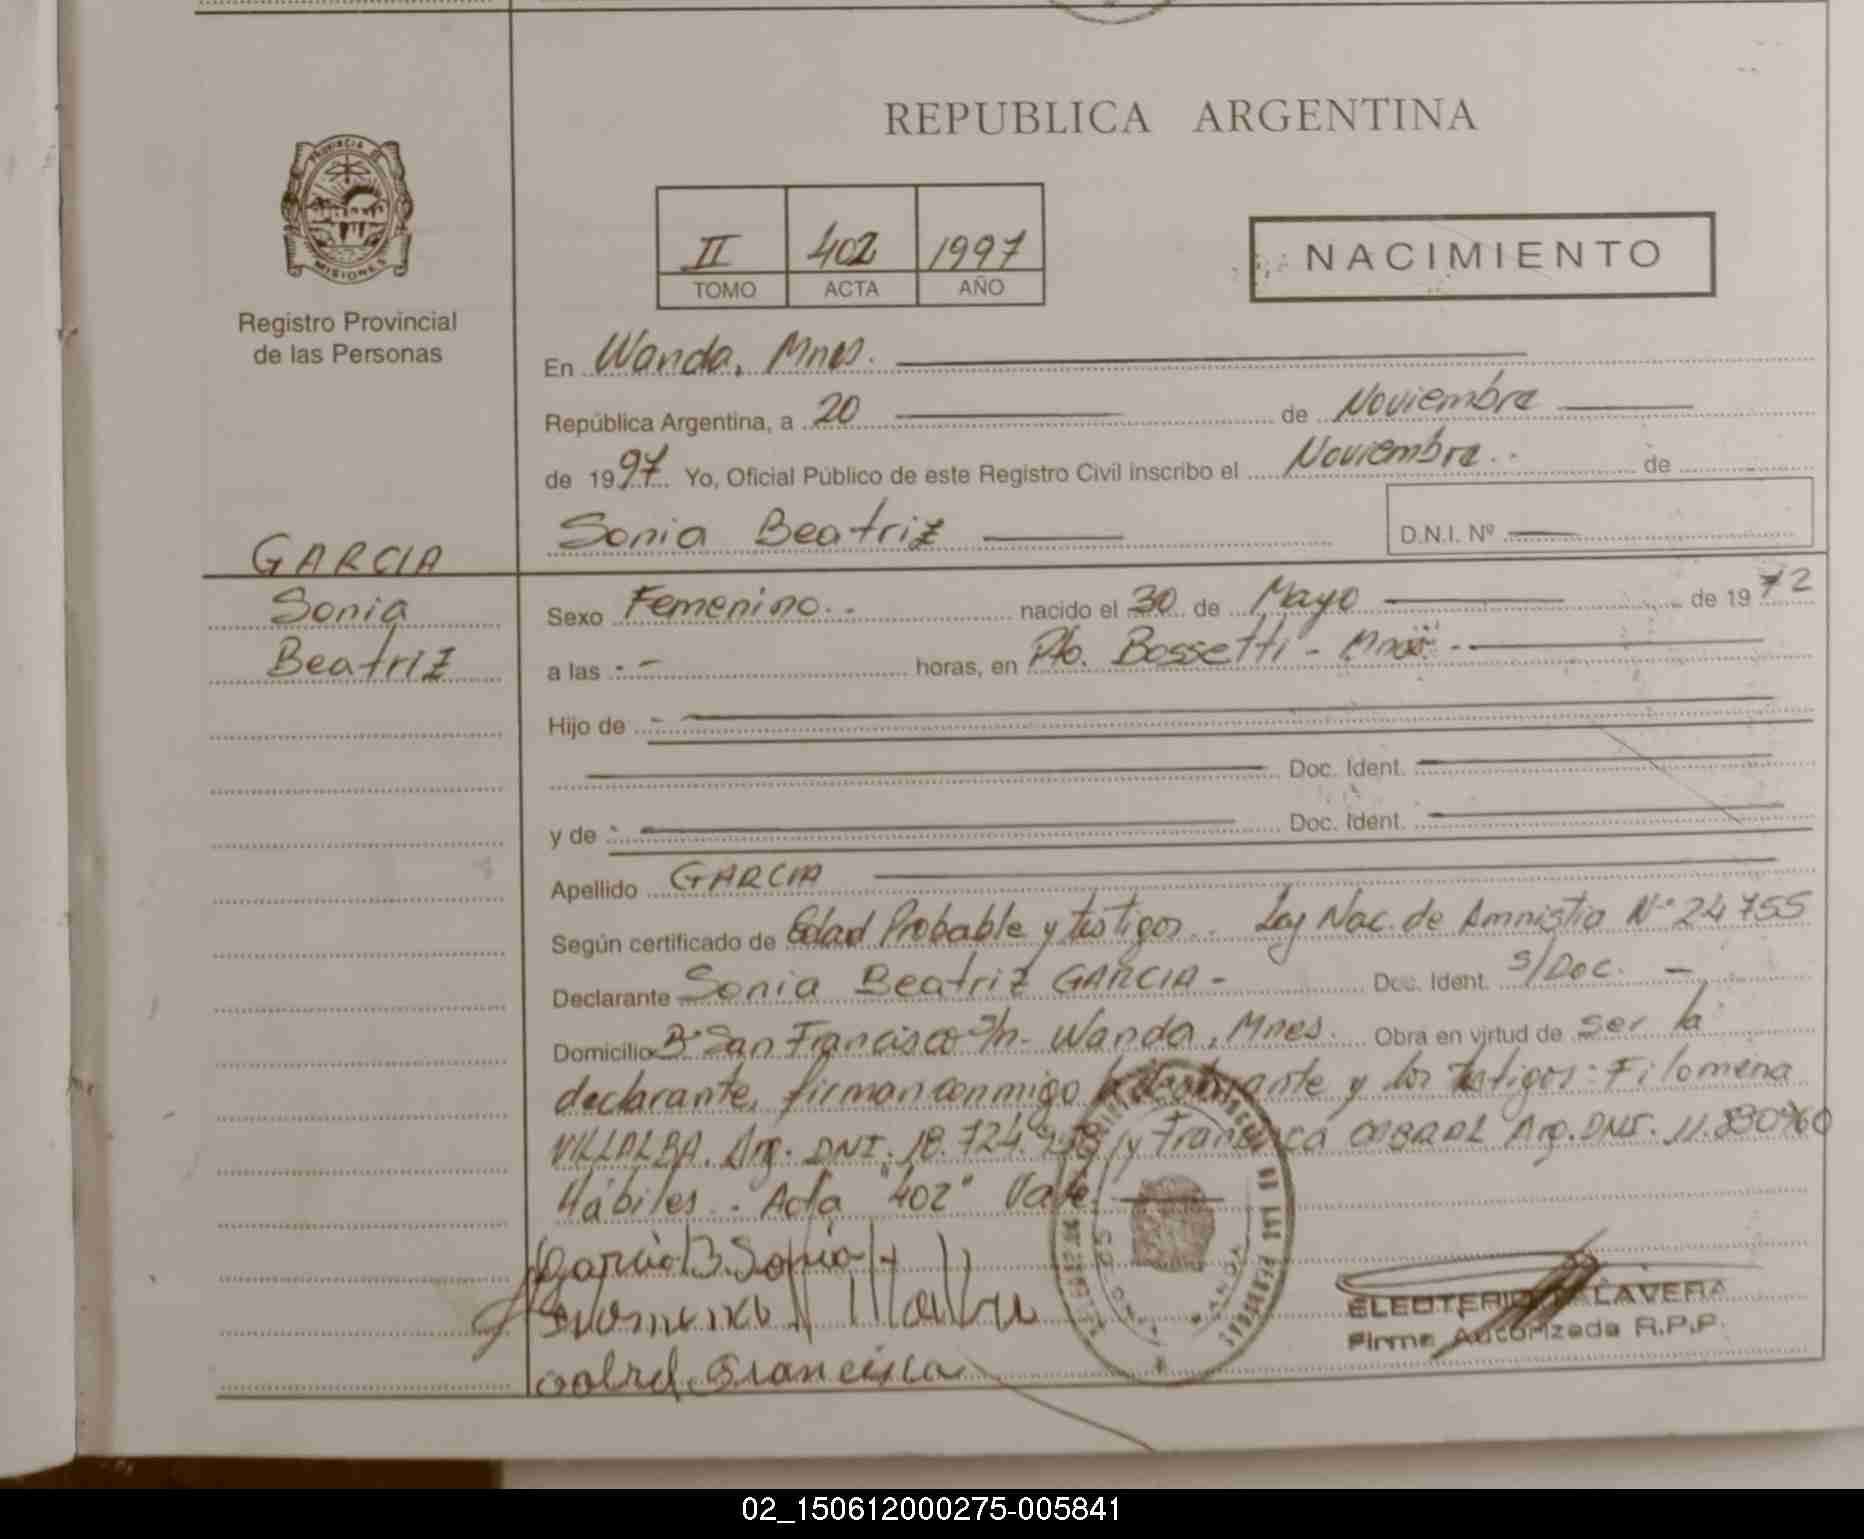 REPUBLICA ARGENTINA
PROVINCIA DE
MISIONES
Registro Provincial
de las Personas
II 402 1997
TOMO ACTA AÑO
NACIMIENTO
En Wanda, Mnes.
República Argentina, a 20 de Noviembre
de 1997 Yo, Oficial Público de este Registro Civil inscribo el Noviembre de
Sonia Beatriz D.N.I. Nº
GARCIA
Sonia
Beatriz
Sexo Femenino nacido el 30 de Mayo de 1972
a las horas, en Pto. Bossetti - Mnes
Hijo de
Doc. Ident.
y de Doc. Ident.
Apellido GARCIA
Según certificado de Edad Probable y testigos. Ley Nac. de Amnistia Nº 24755
Declarante Sonia Beatriz GARCIA - Doc. Ident. S/Doc. -
Domicilio Bº San Francisco S/n. Wanda, Mnes. Obra en virtud de ser la
declarante, firman conmigo la declarante y los testigos: Filomena
VILLALBA. Arg. DNI. 18.724. y Francisca CABRAL Arg. DNI. 11.
Hábiles. - Acta "402" Vale.
Garcia B. Sonia
Cabrel Francisca
WANDA
ELEOTERIO TALAVERA
Firma Autorizada R.P.P.
02_150612000275-005841